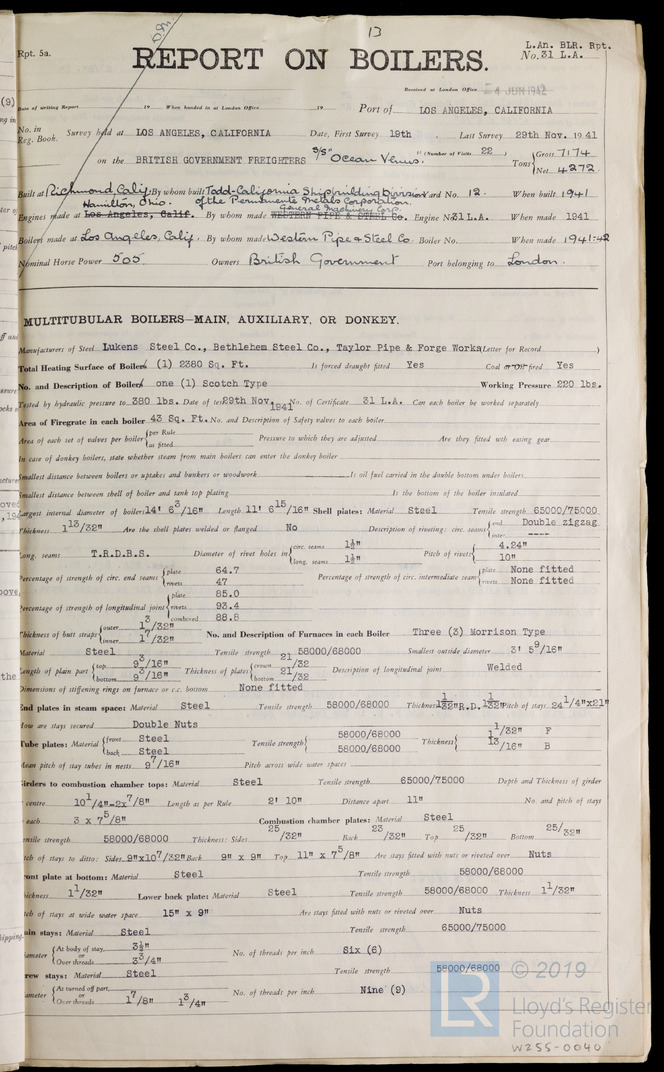 13
L.An. BLR. Rpt.
Rpt. 5a.
No. 31 L.A.
REPORT ON BOILERS.
Received at London Office 24 JUN 1942
Date of writing Report 19 When handed in at London Office 19 Port of LOS ANGELES, CALIFORNIA
No. in Reg. Book. Survey held at LOS ANGELES, CALIFORNIA Date, First Survey 19th Last Survey 29th Nov. 1941
on the BRITISH GOVERNMENT FREIGHTERS S/S "Ocean Venus." (Number of Visits 22) Tons {Gross 7174 Net 4272
Built at Richmond, Calif. By whom built Todd-California Shipbuilding Division of the Permanente Metals Corporation. Yard No. 12. When built 1941
Hamilton, Ohio. General Machinery Corp.
Engines made at Los Angeles, Calif. By whom made WESTERN PIPE & STEEL Co. Engine No. 31 L.A. When made 1941
Boilers made at Los Angeles, Calif. By whom made Western Pipe & Steel Co Boiler No. When made 1941-42
Nominal Horse Power 505 Owners British Government Port belonging to London.
MULTITUBULAR BOILERS—MAIN, AUXILIARY, OR DONKEY.
Manufacturers of Steel Lukens Steel Co., Bethlehem Steel Co., Taylor Pipe & Forge Works (Letter for Record )
Total Heating Surface of Boilers (1) 2380 Sq. Ft. Is forced draught fitted Yes Coal or oil fired Yes
No. and Description of Boilers one (1) Scotch Type Working Pressure 220 lbs.
Tested by hydraulic pressure to 380 lbs. Date of test 29th Nov. 1941 No. of Certificate 31 L.A. Can each boiler be worked separately
Area of Firegrate in each boiler 43 Sq. Ft. No. and Description of Safety valves to each boiler
Area of each set of valves per boiler {per Rule as fitted Pressure to which they are adjusted Are they fitted with easing gear
In case of donkey boilers, state whether steam from main boilers can enter the donkey boiler
Smallest distance between boilers or uptakes and bunkers or woodwork Is oil fuel carried in the double bottom under boilers
Smallest distance between shell of boiler and tank top plating Is the bottom of the boiler insulated
Largest internal diameter of boilers 14' 6 3/16" Length 11' 6 15/16" Shell plates: Material Steel Tensile strength 65000/75000
Thickness 1 13/32" Are the shell plates welded or flanged No Description of riveting: circ. seams {end Double zigzag inter. ----
Long. seams T.R.D.B.S. Diameter of rivet holes in {circ. seams 1½" long. seams 1½" Pitch of rivets {4.24" 10"
Percentage of strength of circ. end seams {plate 64.7 rivets 47 Percentage of strength of circ. intermediate seam {plate None fitted rivets None fitted
Percentage of strength of longitudinal joint {plate 85.0 rivets 93.4 combined 88.8
Thickness of butt straps {outer 1 3/32" inner 1 7/32" No. and Description of Furnaces in each Boiler Three (3) Morrison Type
Material Steel Tensile strength 58000/68000 Smallest outside diameter 3' 5 9/16"
Length of plain part {top 9 3/16" bottom 9 3/16" Thickness of plates {crown 21/32 bottom 21/32 Description of longitudinal joint Welded
Dimensions of stiffening rings on furnace or c.c. bottom None fitted
End plates in steam space: Material Steel Tensile strength 58000/68000 Thickness 1 1/32" R.D. 1 1/32" Pitch of stays 24 1/4"x21"
How are stays secured Double Nuts
Tube plates: Material {front Steel back Steel Tensile strength {58000/68000 58000/68000 Thickness {1 1/32" F 13/16" B
Mean pitch of stay tubes in nests 9 7/16" Pitch across wide water spaces
Girders to combustion chamber tops: Material Steel Tensile strength 65000/75000 Depth and Thickness of girder
centre 10 1/4"-2x7/8" Length as per Rule 2' 10" Distance apart 11" No. and pitch of stays
each 3 x 7 5/8" Combustion chamber plates: Material Steel
Tensile strength 58000/68000 Thickness: Sides 25/32" Back 23/32" Top 25/32" Bottom 25/32"
Pitch of stays to ditto: Sides 9"x10 7/32" Back 9" x 9" Top 11" x 7 5/8" Are stays fitted with nuts or riveted over Nuts
Front plate at bottom: Material Steel Tensile strength 58000/68000
Thickness 1 1/32" Lower back plate: Material Steel Tensile strength 58000/68000 Thickness 1 1/32"
Pitch of stays at wide water space 15" x 9" Are stays fitted with nuts or riveted over Nuts
Main stays: Material Steel Tensile strength 65000/75000
Diameter {At body of stay, 3½" or Over threads 3 3/4" No. of threads per inch Six (6)
Screw stays: Material Steel Tensile strength 58000/68000
Diameter {At turned off part, or Over threads 1 7/8" 1 3/4" No. of threads per inch Nine (9)
LR © 2019
Lloyd's Register
Foundation
W255-0040